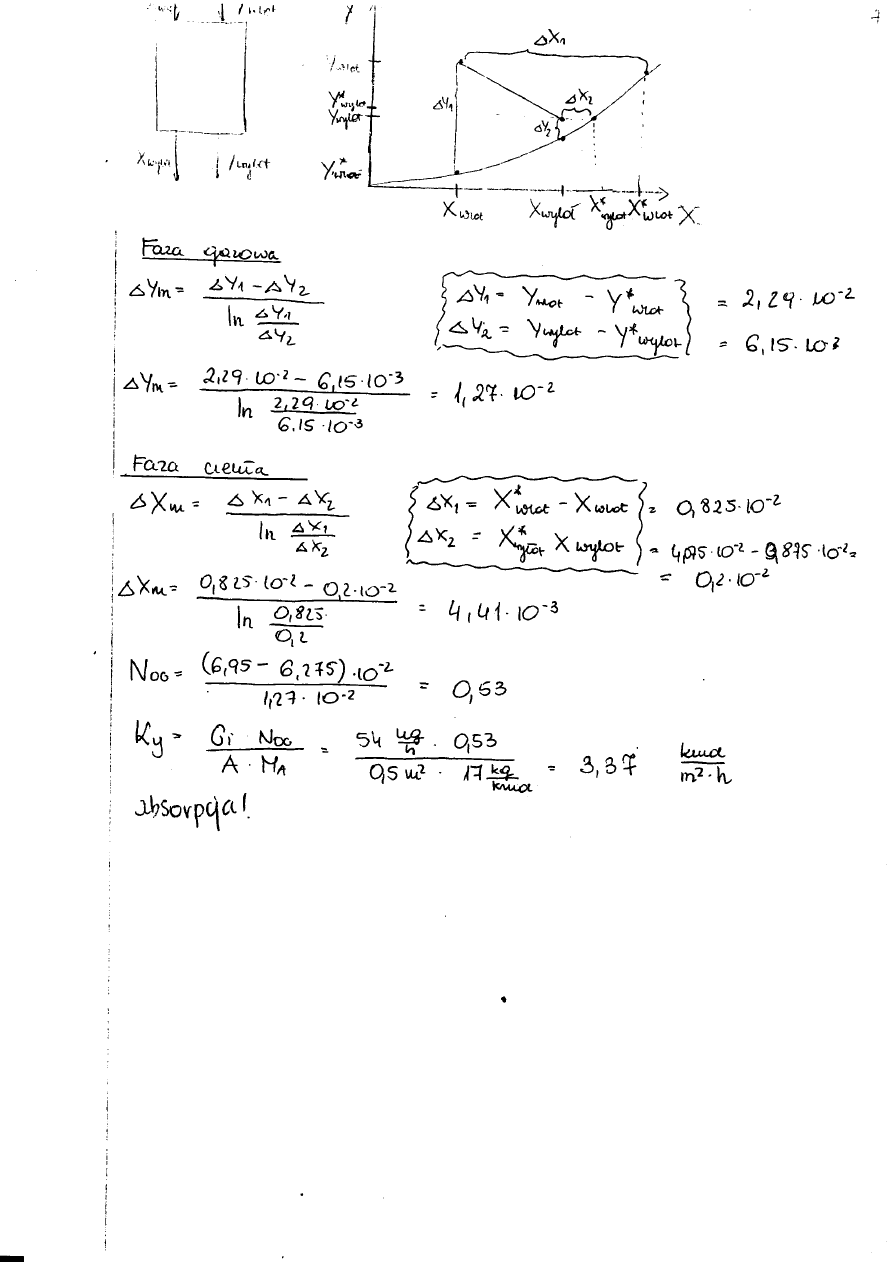 7
Y
ΔX₁
Ywlot
Y*wylot
Ywylot
Y*wlot
ΔY₁
ΔX₂
ΔY₂
Xwylot
Ywylot
Xwlot Xwylot X*wylot X*wlot X
Faza gazowa
ΔYm = (ΔY₁ - ΔY₂) / (ln ΔY₁/ΔY₂)
ΔY₁ = Ywlot - Y*wlot = 2,29·10⁻²
ΔY₂ = Ywylot - Y*wylot = 6,15·10⁻³
ΔYm = (2,29·10⁻² - 6,15·10⁻³) / (ln 2,29·10⁻²/6,15·10⁻³) = 1,27·10⁻²
Faza ciekła
ΔXm = (ΔX₁ - ΔX₂) / (ln ΔX₁/ΔX₂)
ΔX₁ = X*wlot - Xwlot = 0,825·10⁻²
ΔX₂ = X*wylot Xwylot = 4,075·10⁻² - 3,875·10⁻² =
= 0,2·10⁻²
ΔXm = (0,825·10⁻² - 0,2·10⁻²) / (ln 0,825/0,2) = 4,41·10⁻³
NOG = (6,95 - 6,275)·10⁻² / 1,27·10⁻² = 0,53
Ky = (Gi NOG) / (A · MA) = (54 kg/h · 0,53) / (0,5 m² · 17 kg/kmol) = 3,37 kmol/m²·h
absorpcja!